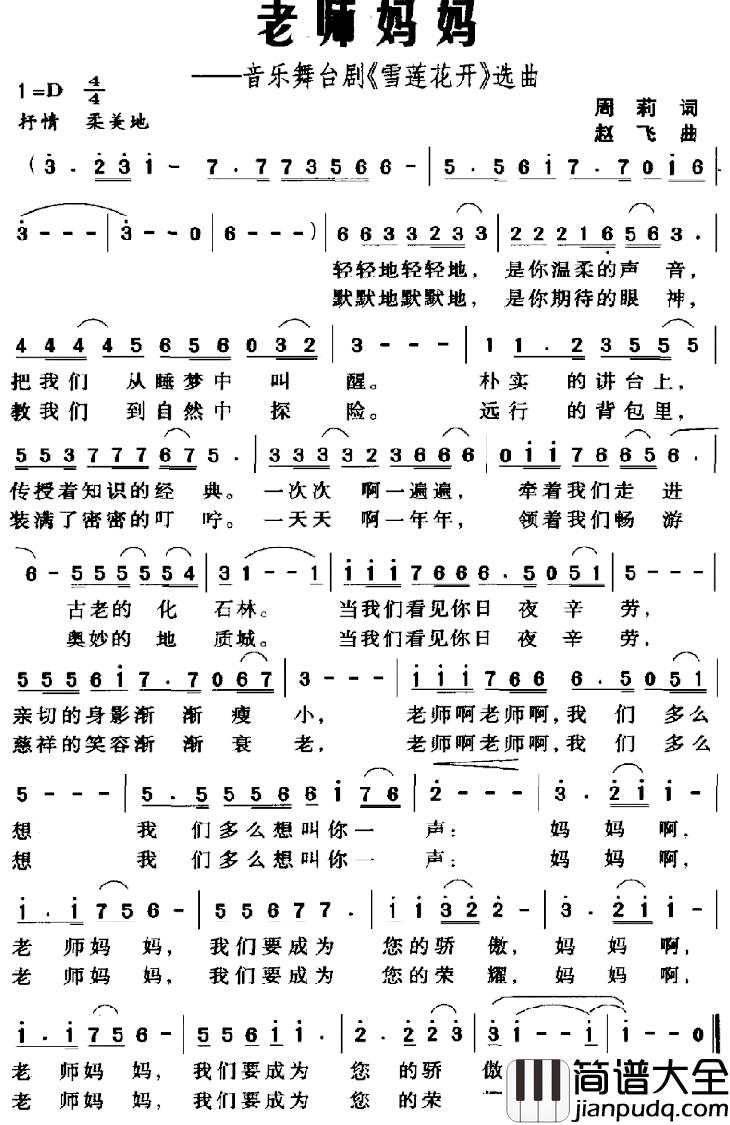 老师妈妈
——音乐舞台剧《雪莲花开》选曲
1=D 4/4
抒情 柔美地
周莉 词
赵飞 曲
(3 . 2 3 1 - 7 . 7 7 3 5 6 6 - | 5 . 5 6 1 7 . 7 0 1 6 |
3 - - - | 3 - - 0 | 6 - - - ) | 6 6 3 3 3 2 3 3 | 2 2 2 1 6 5 6 3 . |
轻轻地轻轻地， 是你温柔的声 音，
默默地默默地， 是你期待的眼 神，
4 4 4 4 5 6 5 6 0 3 2 | 3 - - - | 1 1 . 2 3 5 5 5 |
把我们 从睡梦中 叫 醒。 朴实 的讲台上，
教我们 到自然中 探 险。 远行 的背包里，
5 5 3 7 7 7 6 7 5 . | 3 3 3 3 2 3 6 6 6 | 0 1 1 7 6 6 5 6 . |
传授着知识的经 典。 一次次 啊一遍遍， 牵着我们走 进
装满了密密的叮 咛。 一天天 啊一年年， 领着我们畅 游
6 - 5 5 5 5 5 4 | 3 1 - - 1 | 1 1 1 7 6 6 6 . 5 0 5 1 | 5 - - - |
古老的 化 石林。 当我们看见你日 夜 辛 劳，
奥妙的 地 质城。 当我们看见你日 夜 辛 劳，
5 5 5 6 1 7 . 7 0 6 7 | 3 - - - | 1 1 1 7 6 6 6 . 5 0 5 1 |
亲切的身影渐 渐 瘦 小， 老师啊老师啊，我 们 多么
慈祥的笑容渐 渐 衰 老， 老师啊老师啊，我 们 多么
5 - - - | 5 . 5 5 5 6 6 1 7 6 | 2 - - - | 3 . 2 1 1 - |
想 我 们多么想叫你一 声： 妈 妈啊，
想 我 们多么想叫你一 声： 妈 妈啊，
1 . 1 7 5 6 - | 5 5 6 7 7 . | 1 1 3 2 2 - | 3 . 2 1 1 - |
老 师妈 妈， 我们要成为 您的骄 傲， 妈 妈 啊，
老 师妈 妈， 我们要成为 您的荣 耀， 妈 妈 啊，
1 . 1 7 5 6 - | 5 5 6 1 1 . | 2 . 2 2 3 | 3 1 - - 1 | 1 - - 0 ‖
老 师妈 妈， 我们要成为 您 的骄 傲
老 师妈 妈， 我们要成为 您 的荣
简谱大全
jianpudq.com